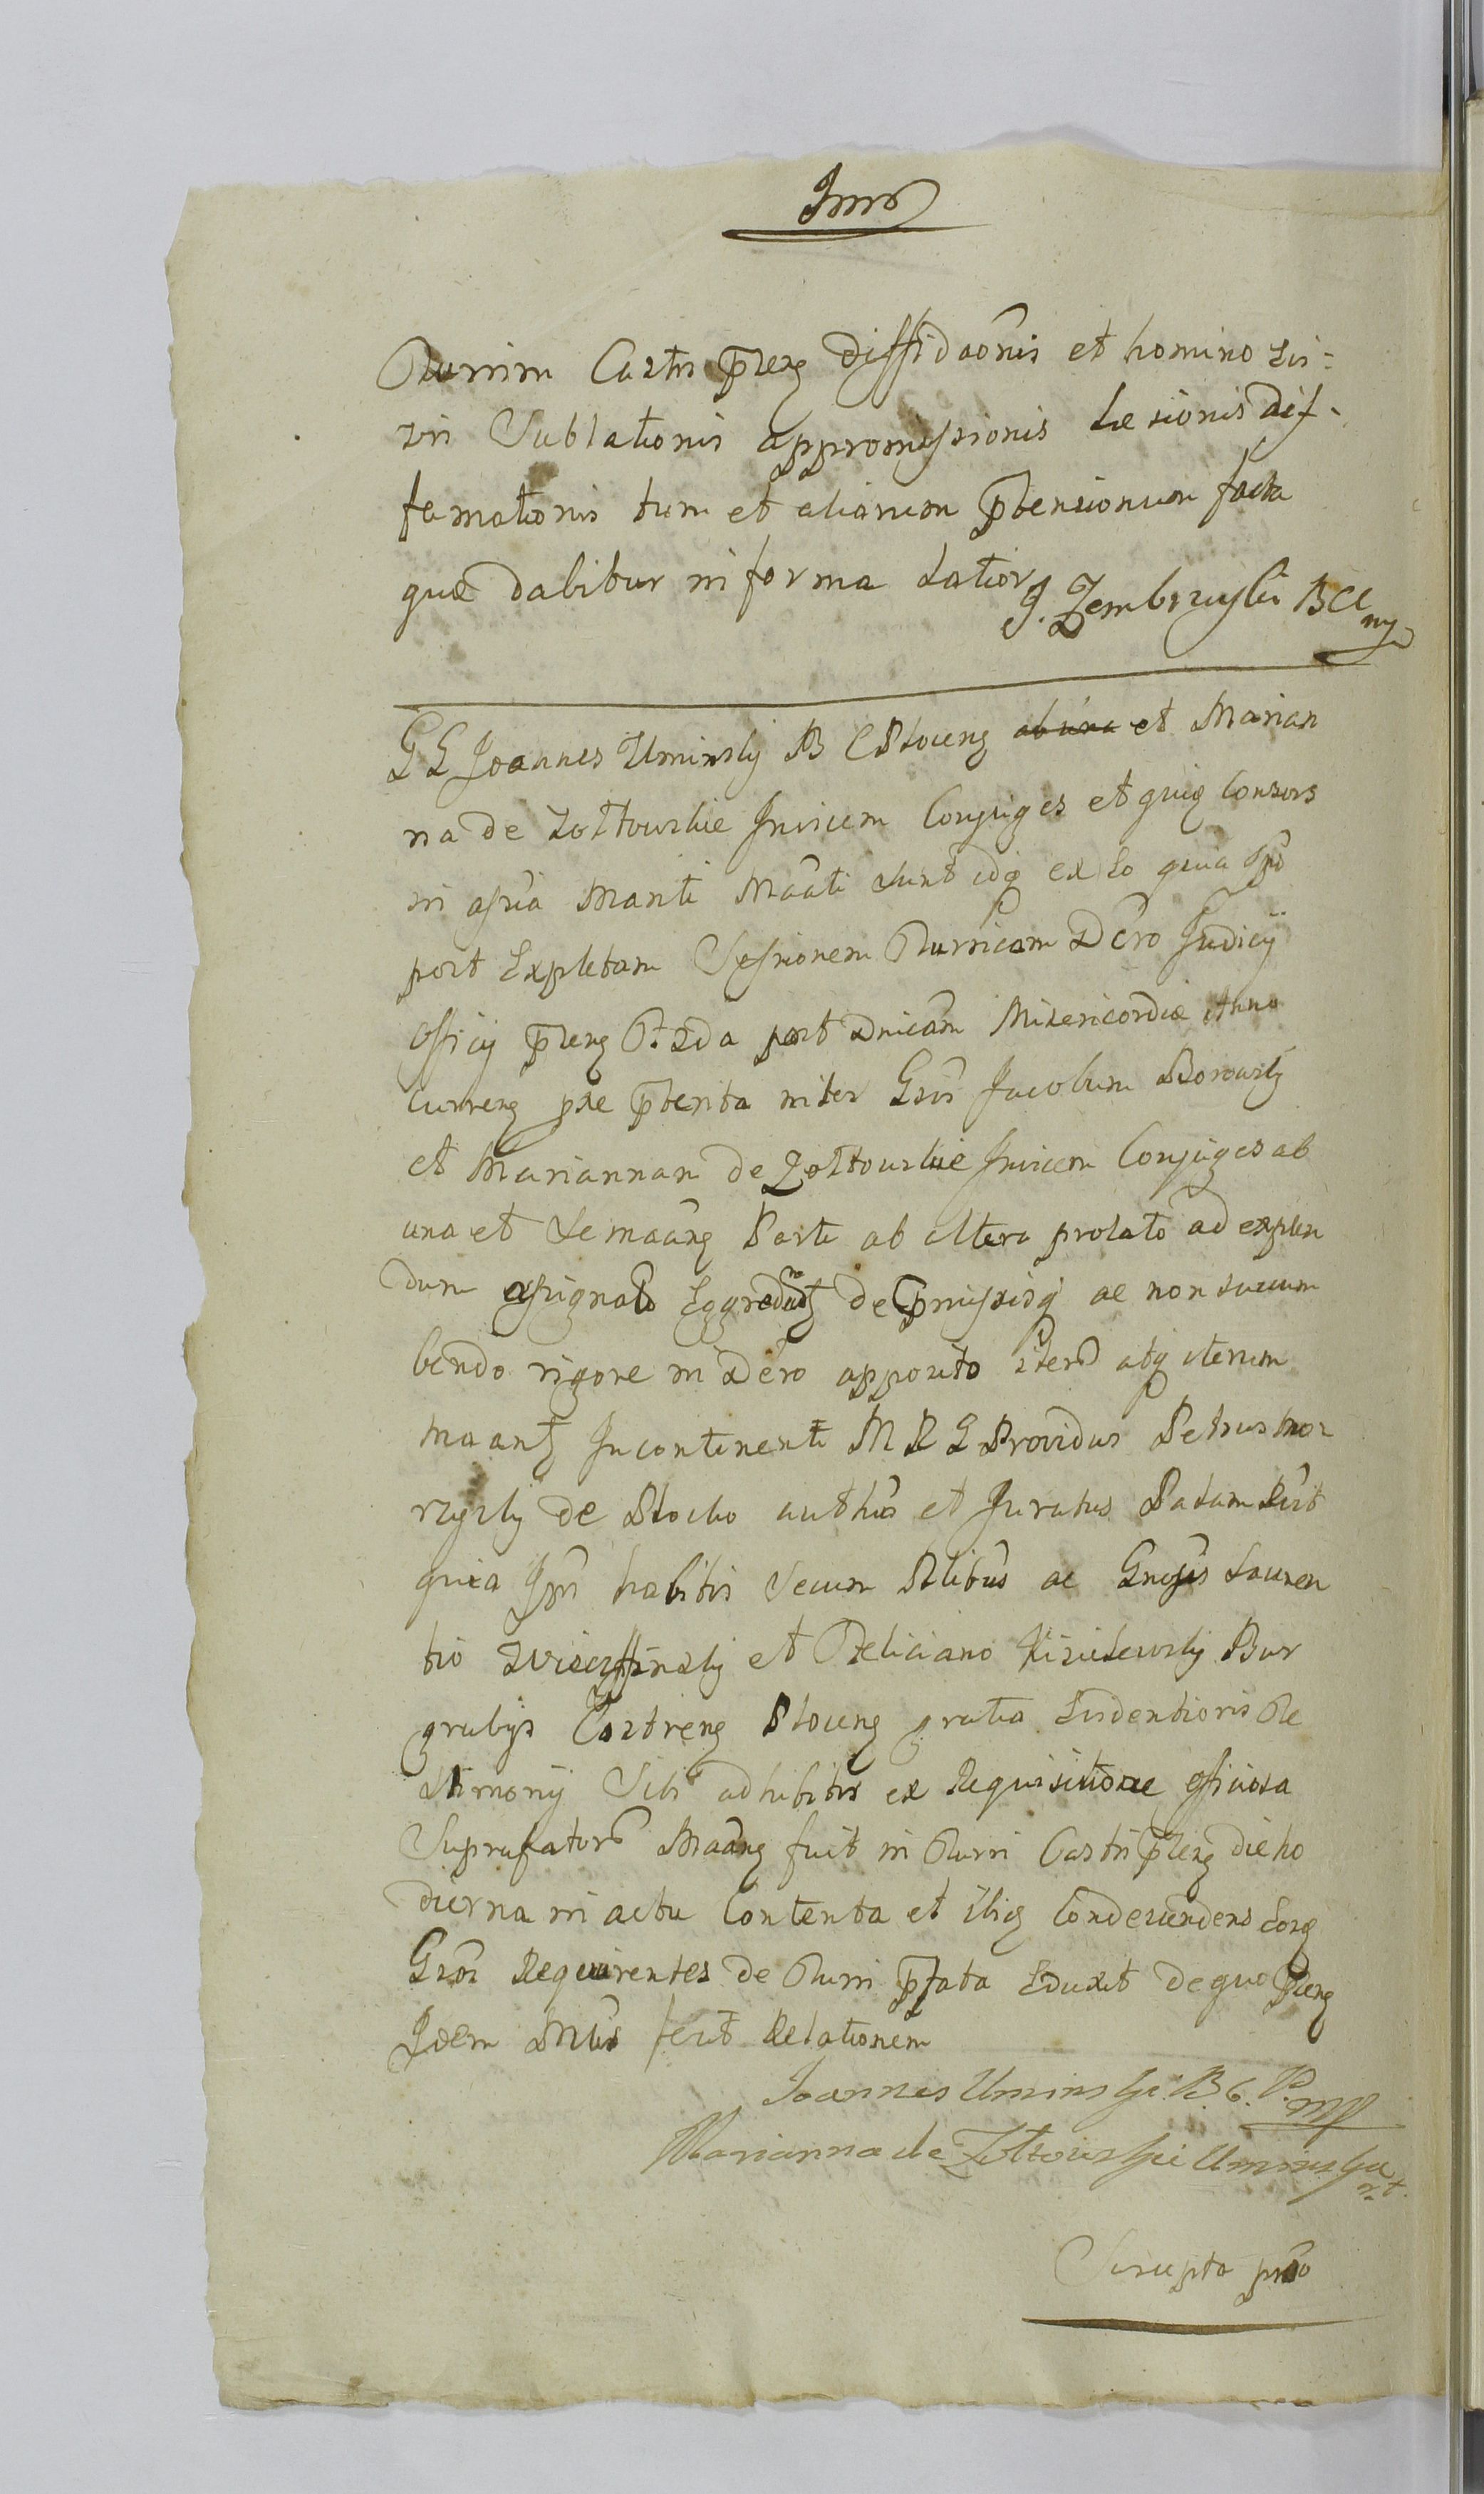 Turrim Castri pleng diffidaonis et homino Lis-
zin Sublationis appromissionis Lesionis dif-
famationis tum et aliarum ptensionum facta
quæ dabitur in forma Latior J. Zembrzuski B C
G G Joannes Uminsky B C Ploceng ab una et Marian
na de Zołtowskie Invicem Conjuges et quiq Consors
in assia Mariti Maāti sunt idq ex Eo quia Ipsi
post Expletam Sessionem Turricam Dcro Judicij
Officij pleng F. 2da post Dnicam Misericordiæ Anno
Curreng præ pterita inter Gsos Jacobum Borowsky
et Mariannam de Zołtowskie Invicem Conjuges ab
una et Se maang Parte ab altera prolato ad explen
dum assignato Eggrediunt de pmissisq ac non succum
bendo rigore in Dcro apposito iterum atq iterum
maant Incontinenti M R G Providus Petrus Mor
rzysky de Płocko authus et Juratus Palam Rūt
quia Ipse habitis Secum Nlibus ac Gnosis Lauren
tio et Feliciano Kisielewsky Bur
grabijs Castreng Ploceng gratia Evidentioris Te
stimonij Sibi adhibitis ex Requisitione officiosa
Suprafatorū Maang fuit in Turri Castri pleng die ho
dierna in actu Contenta et ibiq Condescendens Eosq
Gsos Requirentes de Turri pfata Eduxit de quo pleng
Idem Mlis fecit Relationem
Joannes Uminski B. C. P. mp
Marianna de Zołtowskie Uminska
Suscepta pmo